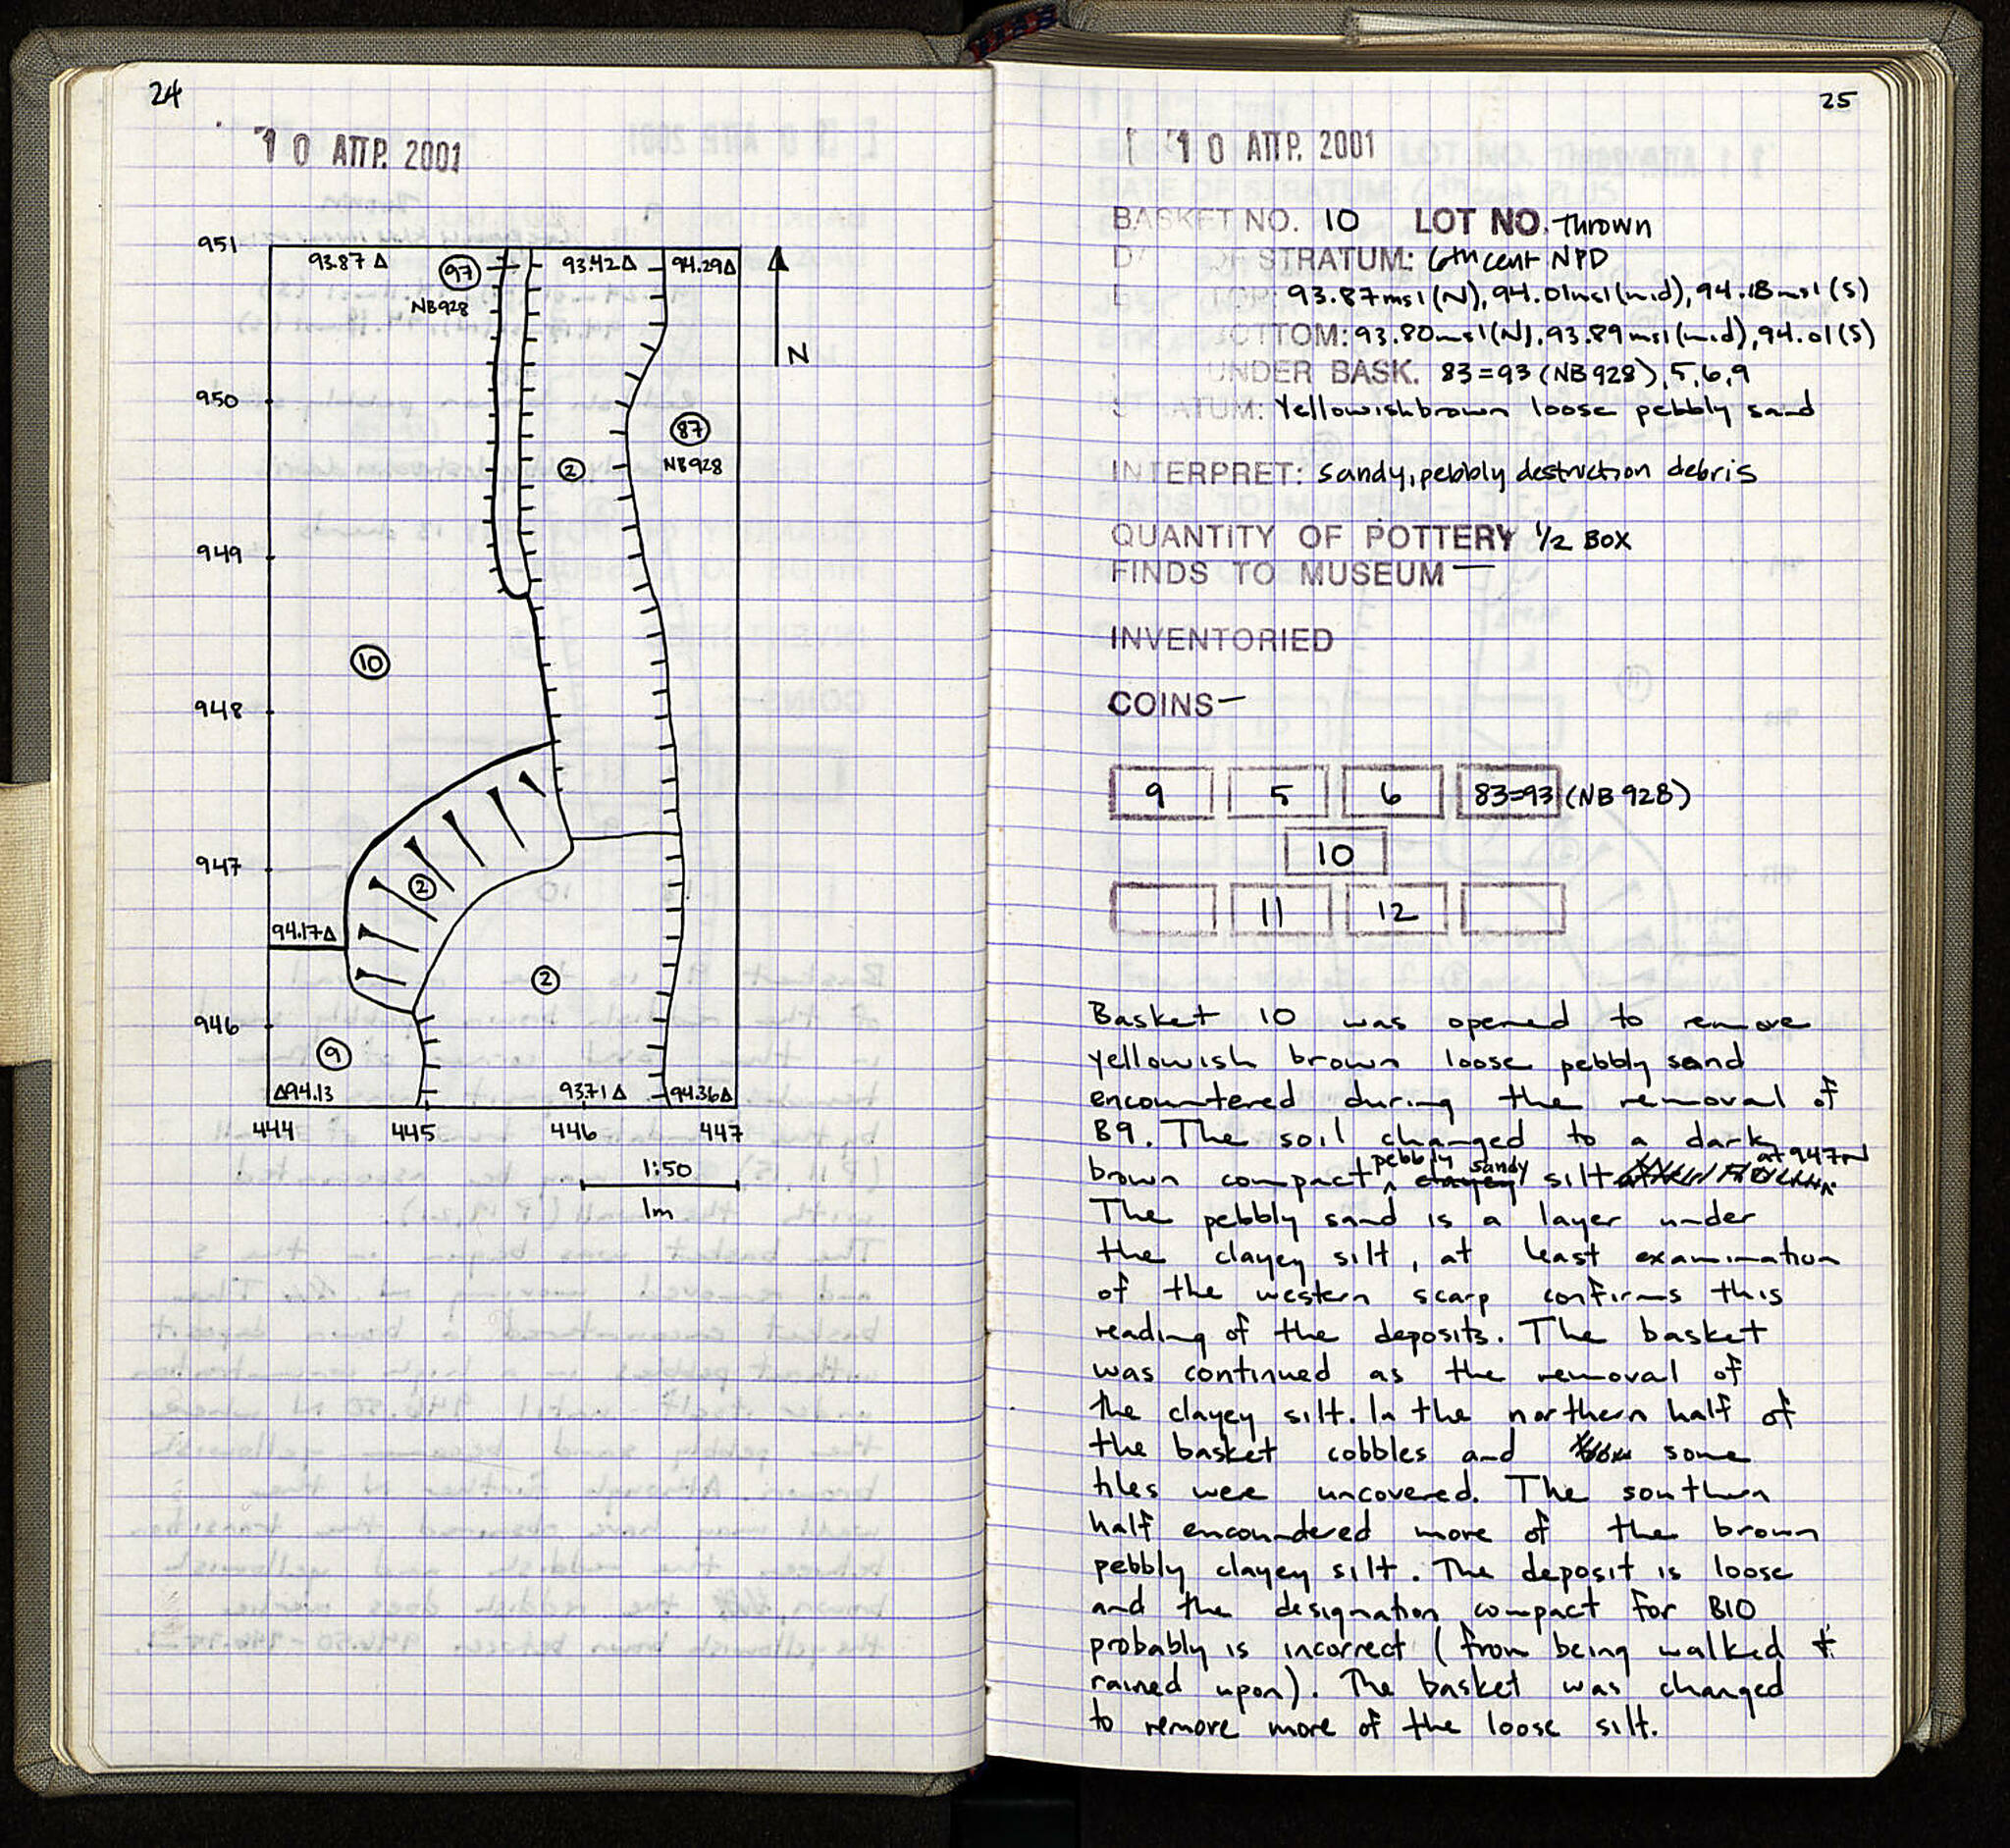 24
10 ΑΠΡ. 2001
951
93.87 Δ
97
NB928
93.42Δ
94.29Δ
N
950
87
NB928
2
949
10
948
947
2
94.17Δ
2
946
9
Δ94.13
93.71 Δ
94.36Δ
444 445 446 447
1:50
1m
25
10 ΑΠΡ. 2001
BASKET NO. 10 LOT NO. Thrown
STRATUM: 6th cent NPD
93.87msl(N), 94.01msl(mid), 94.18msl(S)
BOTTOM: 93.80msl(N), 93.89msl(mid), 94.01(S)
UNDER BASK. 83=93 (NB928), 5, 6, 9
STRATUM: Yellowish brown loose pebbly sand
INTERPRET: sandy, pebbly destruction debris
QUANTITY OF POTTERY 1/2 BOX
FINDS TO MUSEUM —
INVENTORIED
COINS —
9 5 6 83=93 (NB928)
10
11 12
Basket 10 was opened to remove
yellowish brown loose pebbly sand
encountered during the removal of
B9. The soil changed to a dark
brown compact pebbly clayey sandy silt at 947N
The pebbly sand is a layer under
the clayey silt, at least examination
of the western scarp confirms this
reading of the deposits. The basket
was continued as the removal of
the clayey silt. In the northern half of
the basket cobbles and some
tiles were uncovered. The southern
half encoundered more of the brown
pebbly clayey silt. The deposit is loose
and the designation compact for B10
probably is incorrect (from being walked +
rained upon). The basket was changed
to remove more of the loose silt.